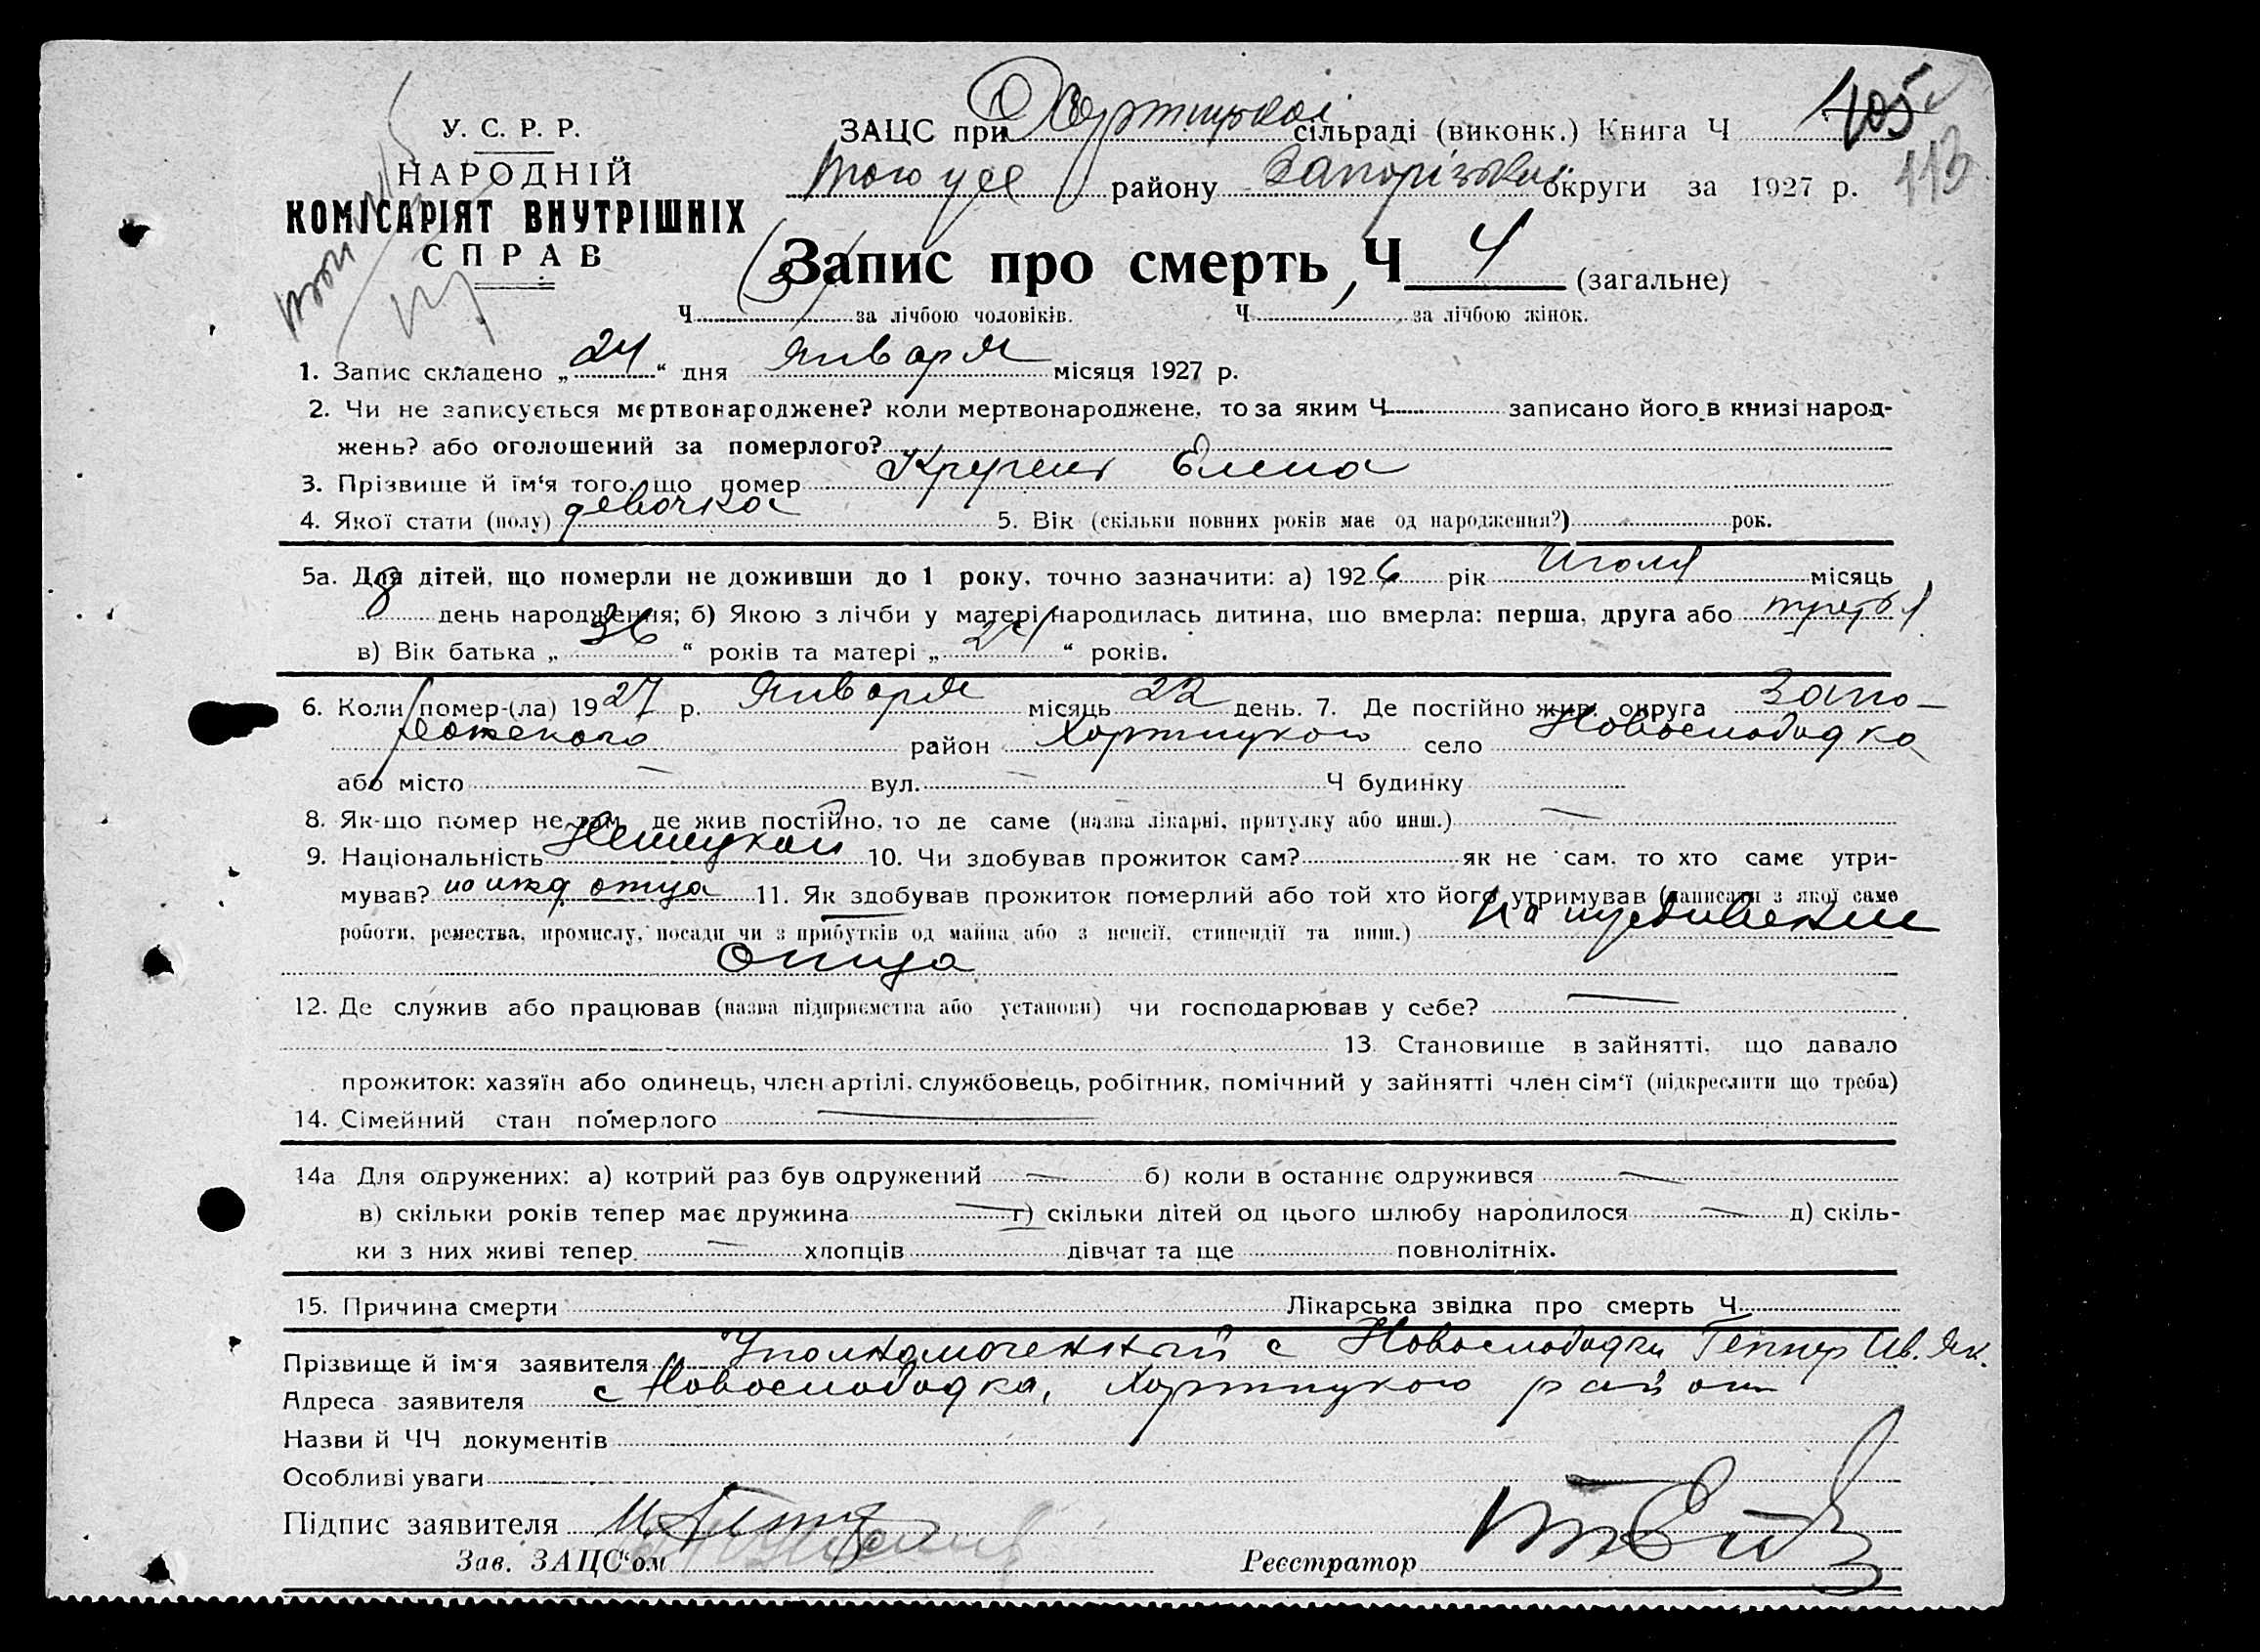 У. С. Р. Р.
НАРОДНІЙ
КОМІСАРІЯТ ВНУТРІШНІХ
СПРАВ
ЗАЦС при Хортицької сільраді (виконк.) Книга Ч 105
того уее району Запорізької округи за 1927 р. 113
Запис про смерть, Ч 4 (загальне)
Ч за лічбою чоловіків. Ч за лічбою жінок.
1. Запис складено „24“ дня Января місяця 1927 р.
2. Чи не записується мертвонароджене? коли мертвонароджене, то за яким Ч записано його в книзі народ-
жень? або оголошений за померлого?
3. Прізвище й ім'я того, що помер Елена
4. Якої стати (полу) девочка 5. Вік (скільки повних років має од народження?) рок.
5а. Для дітей, що померли не доживши до 1 року, точно зазначити: а) 1926 рік Июля місяць
8 день народження; б) Якою з лічби у матері народилась дитина, що вмерла: перша, друга або третья
в) Вік батька „36“ років та матері „24“ років.
6. Коли помер-(ла) 1927 р. Января місяць 22 день. 7. Де постійно жив: округа Запо-
рожского район Хортицкого село Новослободка
або місто — вул. — Ч будинку
8. Як-що помер не там, де жив постійно, то де саме (назва лікарні, притулку або инш.) —
9. Національність Немецкой 10. Чи здобував прожиток сам? як не сам, то хто саме утри-
мував? на ижд отца 11. Як здобував прожиток померлий або той хто його утримував (написати з якої саме
роботи, ремества, промислу, посади чи з прибутків од майна або з пенсії, стипендії та инш.) На иждивение
Отца
12. Де служив або працював (назва підприємства або установи) чи господарював у себе? —
13. Становище в зайнятті, що давало
прожиток: хазяїн або одинець, член артілі, службовець, робітник, помічний у зайнятті член сім'ї (підкреслити що треба)
14. Сімейний стан померлого —
14а Для одружених: а) котрий раз був одружений — б) коли в останнє одружився —
в) скільки років тепер має дружина — г) скільки дітей од цього шлюбу народилося — д) скіль-
ки з них живі тепер — хлопців дівчат та ще повнолітніх.
15. Причина смерти Лікарська звідка про смерть Ч
Прізвище й ім'я заявителя Уполномоченный с Новослободки Геппер Ив. Як.
Адреса заявителя с Новослободка, Хортицкого район
Назви й ЧЧ документів
Особливі уваги
Підпис заявителя
Зав. ЗАЦС'ом Реєстратор